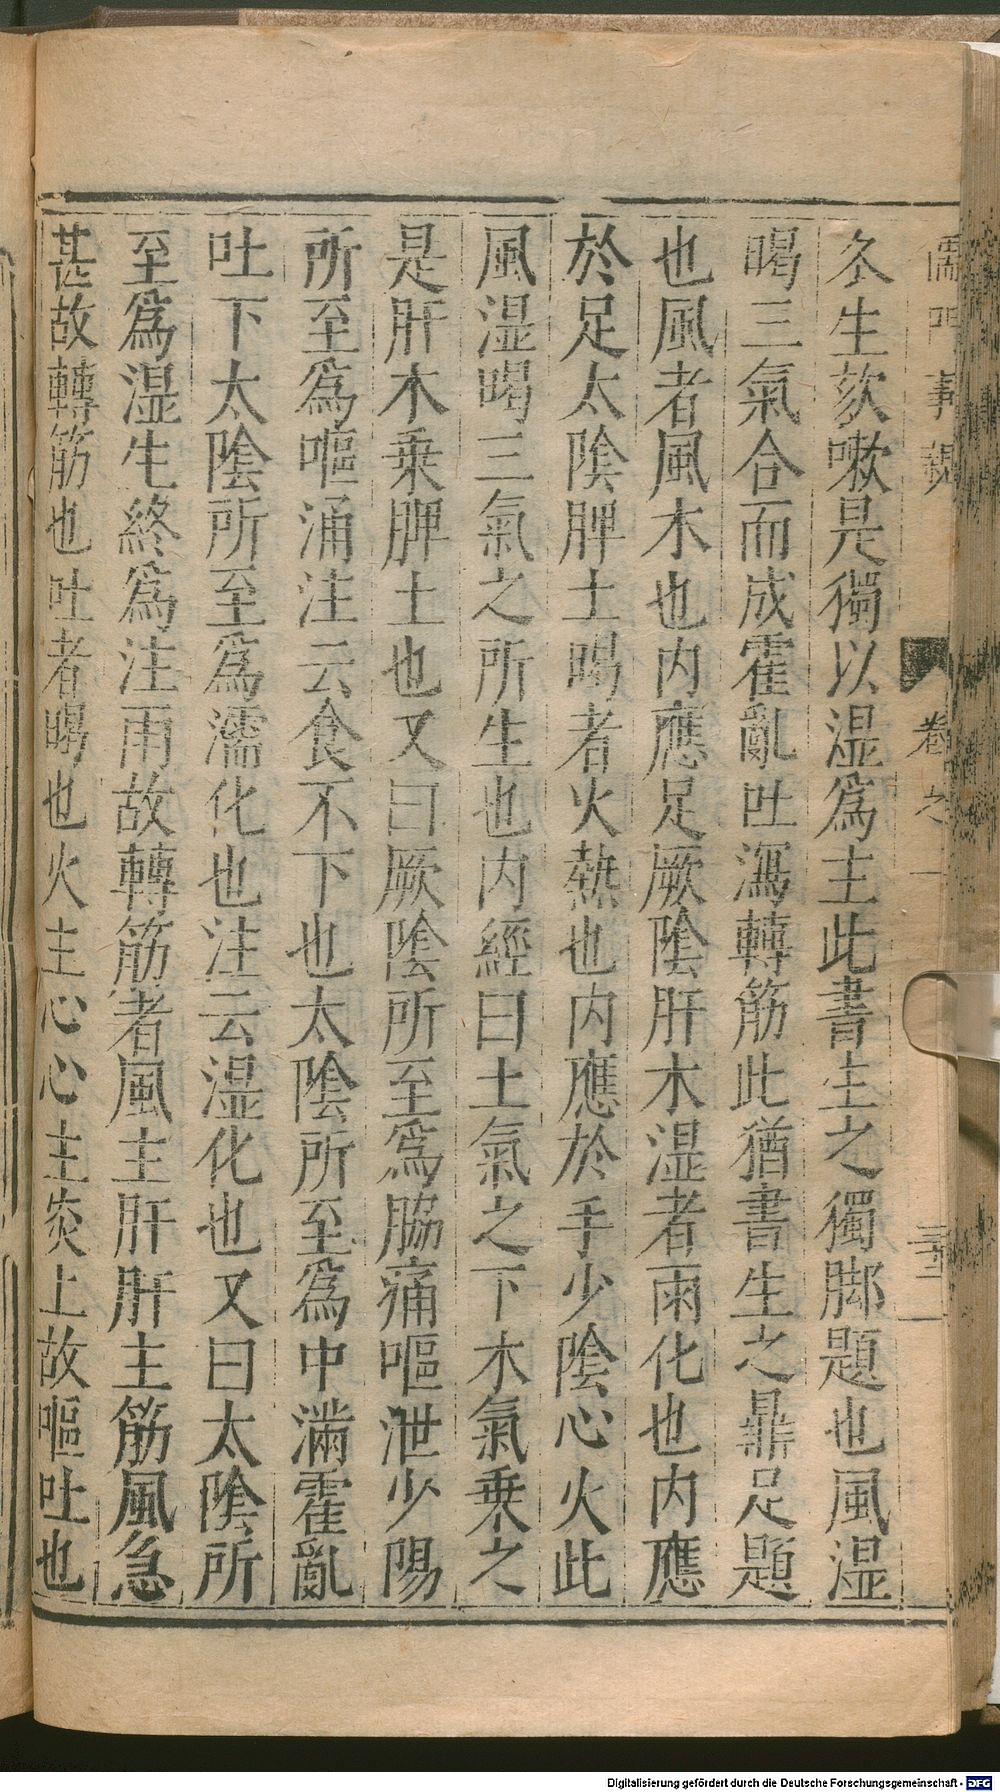 儒門事親
卷之一
冬生欬嗽是獨以湿爲主此書生之獨脚題也風湿
暍三氣合而成霍亂吐瀉轉筋此猶書生之鼎足題
也風者風木也内應足厥陰肝木湿者雨化也内應
於足太陰脾土暍者火熱也内應於手少陰心火此
風湿暍三氣之所生也内經曰土氣之下木氣乗之
是肝木乗脾土也又曰厥陰所至爲脇痛嘔泄少陽
所至爲嘔涌注云食不下也太陰所至爲中滿霍亂
吐下太陰所至爲濡化也注云湿化也又曰太陰所
至爲湿生終爲注雨故轉筋者風主肝肝主筋風急
甚故轉筋也吐者暍也火主心心主炎上故嘔吐也
Digitalisierung gefördert durch die Deutsche Forschungsgemeinschaft - DFG